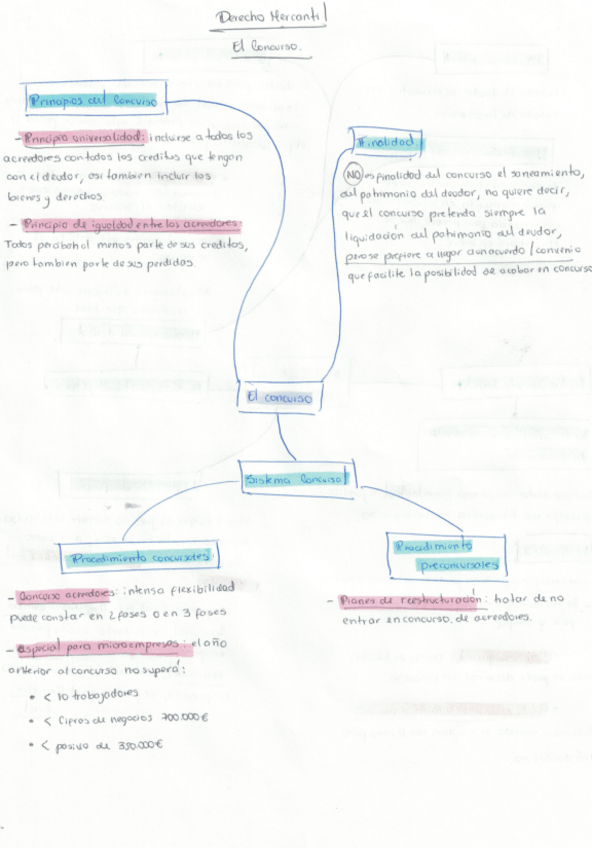 Derecho Mercantil
El Concurso.
Principios del Concurso
- Principio universalidad: incluirse a todos los
acreedores con todos los creditos que tengan
con el deudor, asi tambien incluir los
bienes y derechos
- Principio de igualdad entre los acreedores:
Todos perciban al menos parte de sus creditos,
pero tambien parte de sus perdidas.
Finalidad.
NO es finalidad del concurso el saneamiento,
del patrimonio del deudor, no quiere decir,
que el concurso pretenda siempre la
liquidación del patrimonio del deudor,
pero se prefiere a llegar a un acuerdo / convenio
que facilite la posibilidad de acabar en concurso
El concurso
Sistema Concursal
Procedimiento concursales:
- Concurso acreedores: intensa flexibilidad
puede constar en 2 fases o en 3 fases
- especial para microempresas: el año
anterior al concurso no superá:
• < 10 trabajadores
• < Cifras de negocios 700.000€
• < pasivo de 350.000€
Procedimiento
preconcursales
- Planes de reestructuración: tratar de no
entrar en concurso de acreedores.